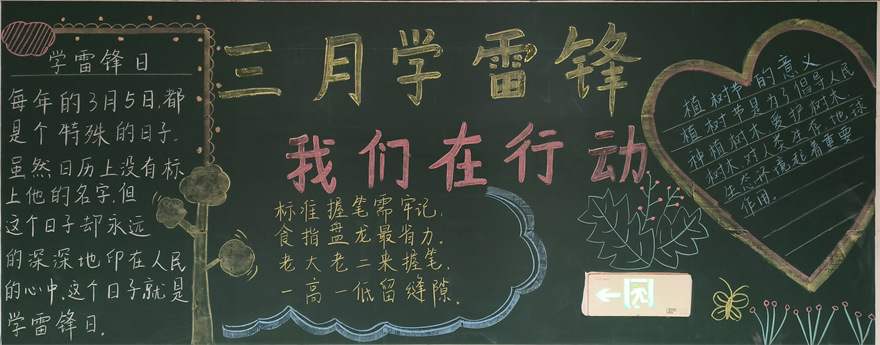 三月学雷锋
我们在行动
学雷锋日
每年的3月5日,都
是个特殊的日子.
虽然日历上没有标
上他的名字,但
这个日子却永远
的深深地印在人民
的心中,这个日子就是
学雷锋日.
标准握笔需牢记,
食指盘龙最省力.
老大老二来握笔,
一高一低留缝隙.
植树节的意义
植树节是为了倡导人民
种植树木,爱护树木.
树木对人类生存,地球
生态环境起着重要
作用.